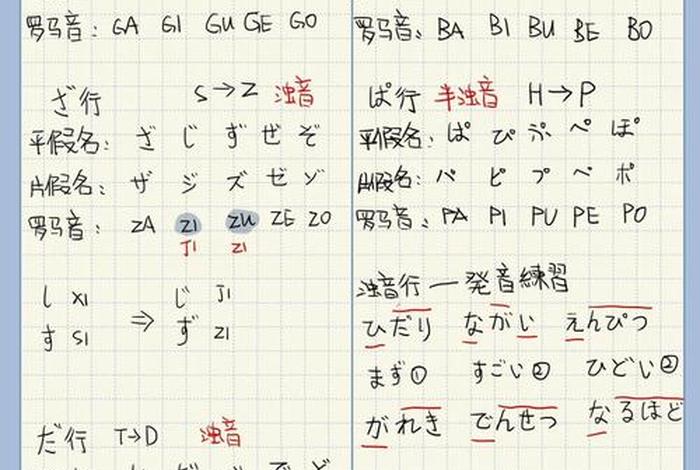 罗马音: GA GI GU GE GO
ざ行 S→Z 浊音
平假名: ざ じ ず ぜ ぞ
片假名: ザ ジ ズ ゼ ゾ
罗马音: ZA ZI ZU ZE ZO
JI ZI
し XI ⇒ じ JI
す SI ず ZI
だ行 T→D 浊音
罗马音: BA BI BU BE BO
ぱ行 半浊音 H→P
平假名: ぱ ぴ ぷ ぺ ぽ
片假名: パ ピ プ ペ ポ
罗马音: PA PI PU PE PO
浊音行 — 発音練習
ひだり ながい えんぴつ
まず① すごい② ひどい②
がれき でんせつ なるほど